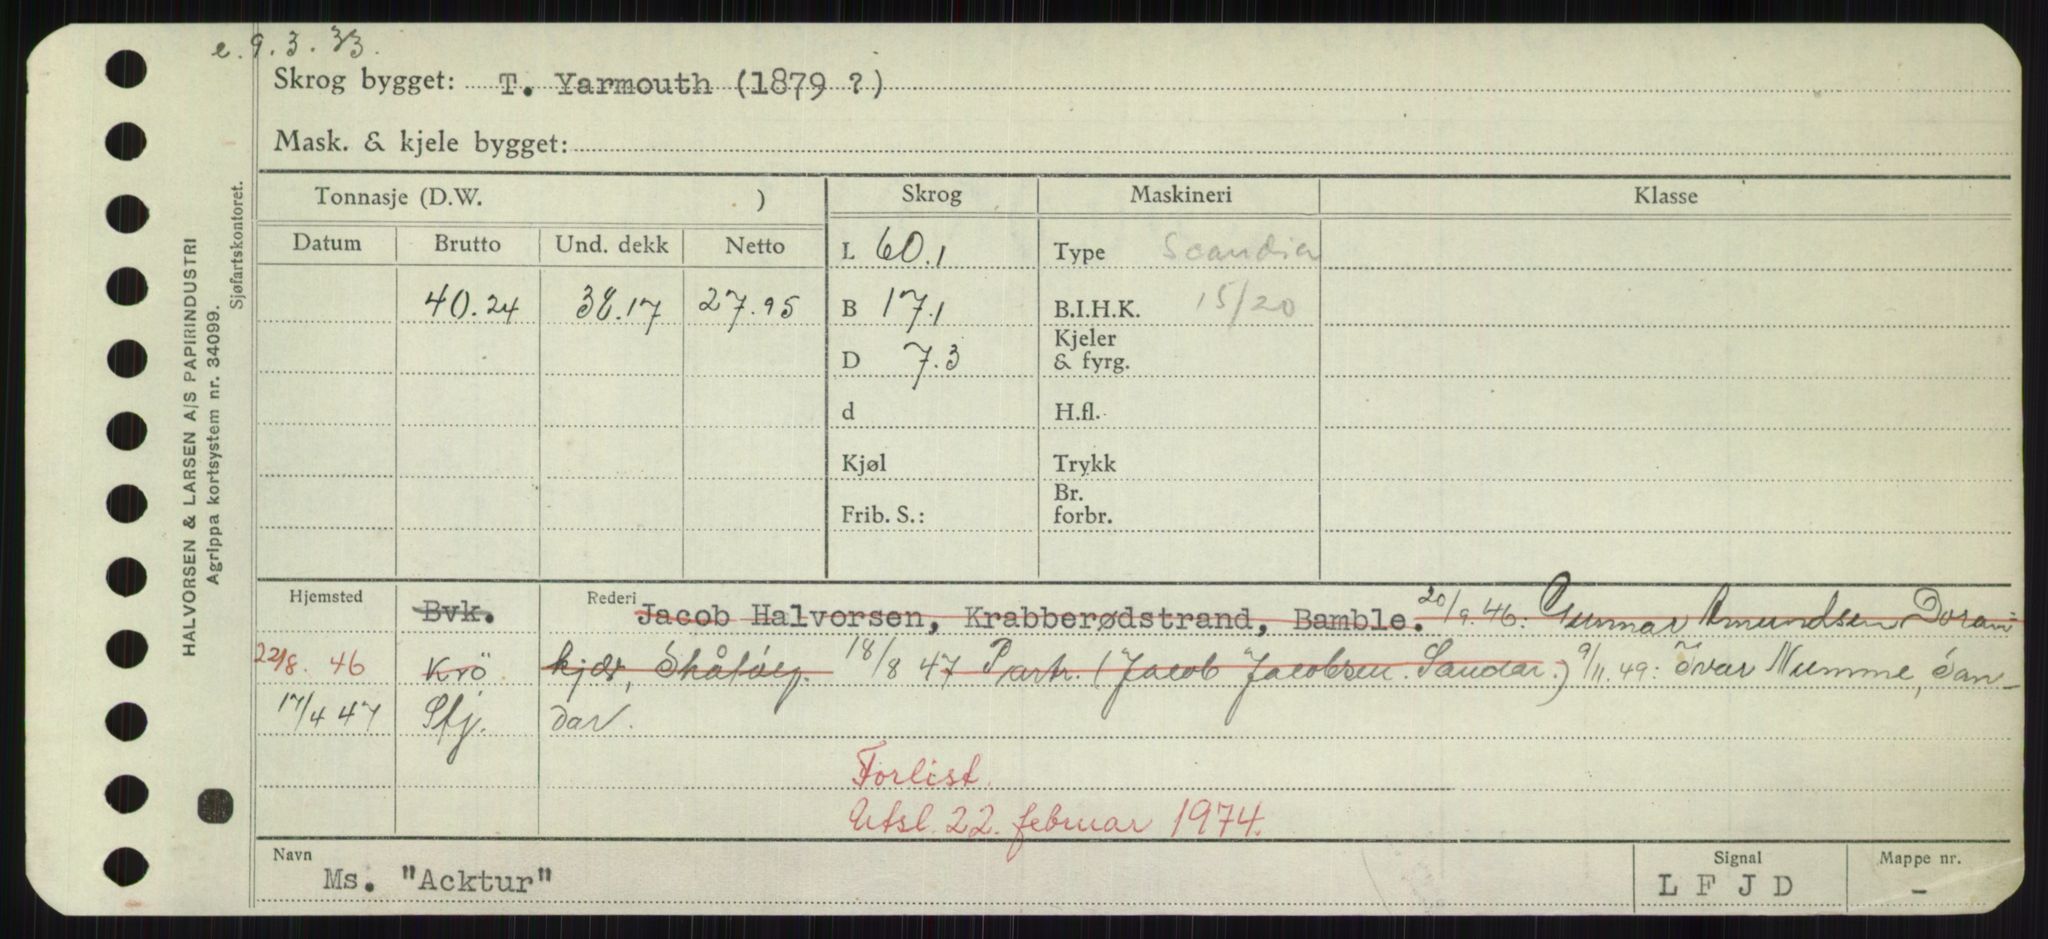 e. 9.3.33.
Skrog bygget: T. Yarmouth (1879 ?)
Mask. & kjele bygget:
Tonnasje (D.W. ) Skrog Maskineri Klasse
Datum Brutto Und. dekk Netto L 60.1 Type Scandia
40.24 38.17 27.95 B 17.1 B.I.H.K. 15/20
D 7.3 Kjeler & fyrg.
d H.fl.
Kjøl Trykk
Frib. S.: Br. forbr.
Hjemsted Bvk. Rederi Jacob Halvorsen, Krabberødstrand, Bamble. 20/9.46: Gunnar Amundsen Doran-
22/8. 46 Krö kjær, Skåtøy. 18/8 47 Partr. (Jacob Jacobsen. Sandar.) 9/11.49: Ivar Numme, San-
17/4 47 Sfj. dar.
Forlist.
Utsl. 22. februar 1974.
Navn Ms. "Acktur" Signal L F J D Mappe nr. -
HALVORSEN & LARSEN A/S PAPIRINDUSTRI
Agrippa kortsystem nr. 34099.
Sjøfartskontoret.